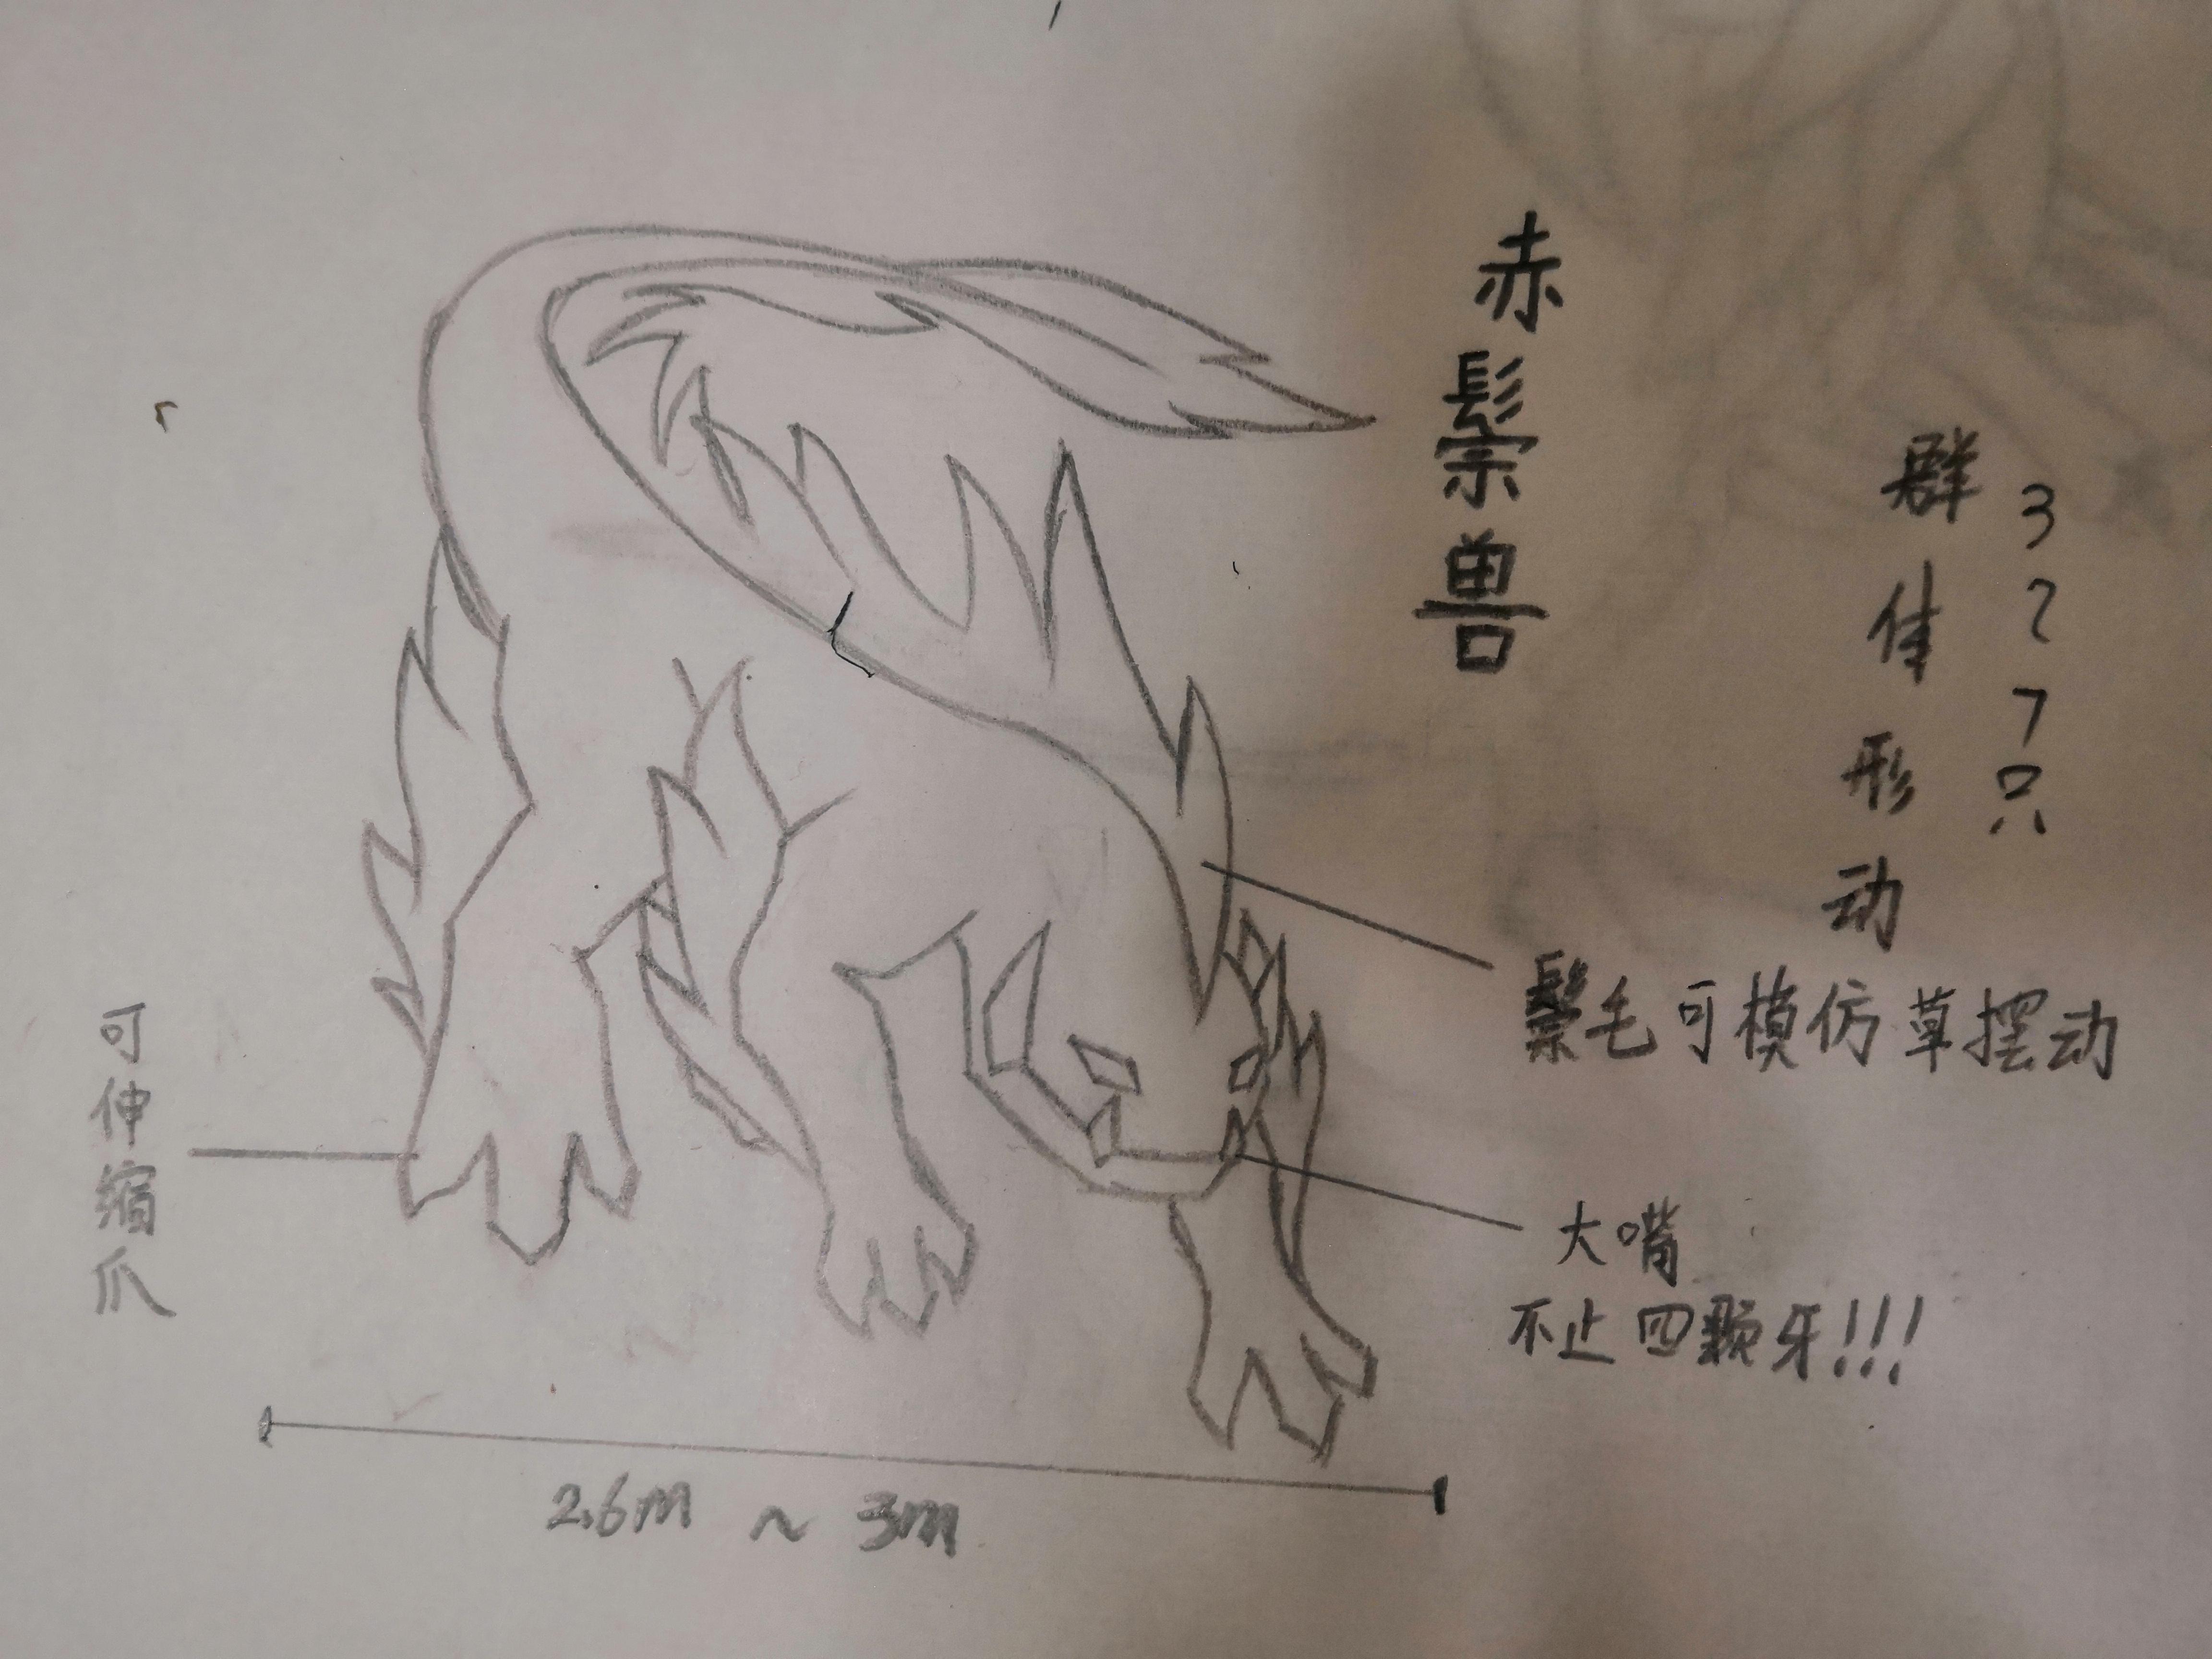 赤鬃兽
群体形动
3~7只
鬃毛可模仿草摆动
可伸缩爪
大嘴
不止四颗牙!!!
2.6m ~ 3m